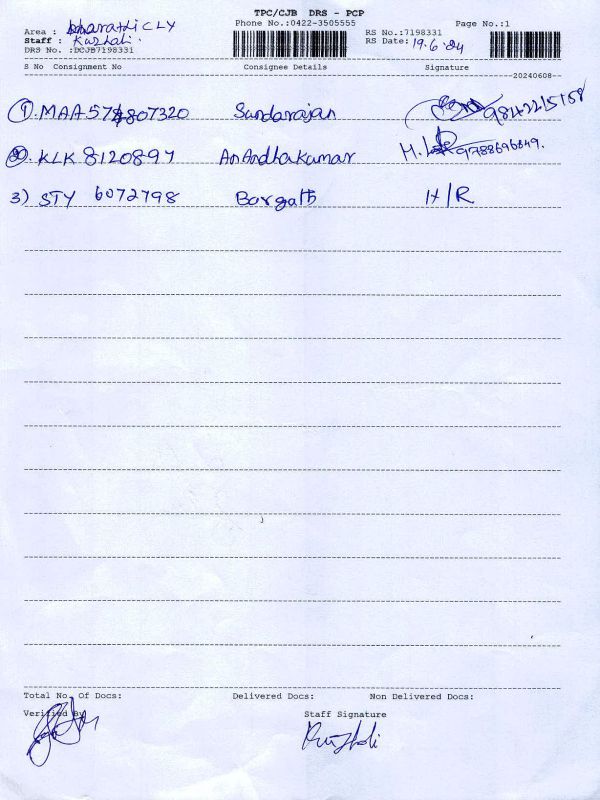 TPC/CJB DRS - PCP
Phone No.:0422-3505555 Page No.:1
Area : bharathi CLY RS No.:7198331
Staff : Kuzhali. RS Date: 19.6.24
DRS No. :DCJB7198331
S No Consignment No Consignee Details Signature
20240608
1. MAA 574807320 Sundarajan 9842215158
2. KLK 8120897 AnAndhakumar M. 9788696849.
3) STY 6072798 H/R
Total No. Of Docs: Delivered Docs: Non Delivered Docs:
Verified By Staff Signature
Kuzhali